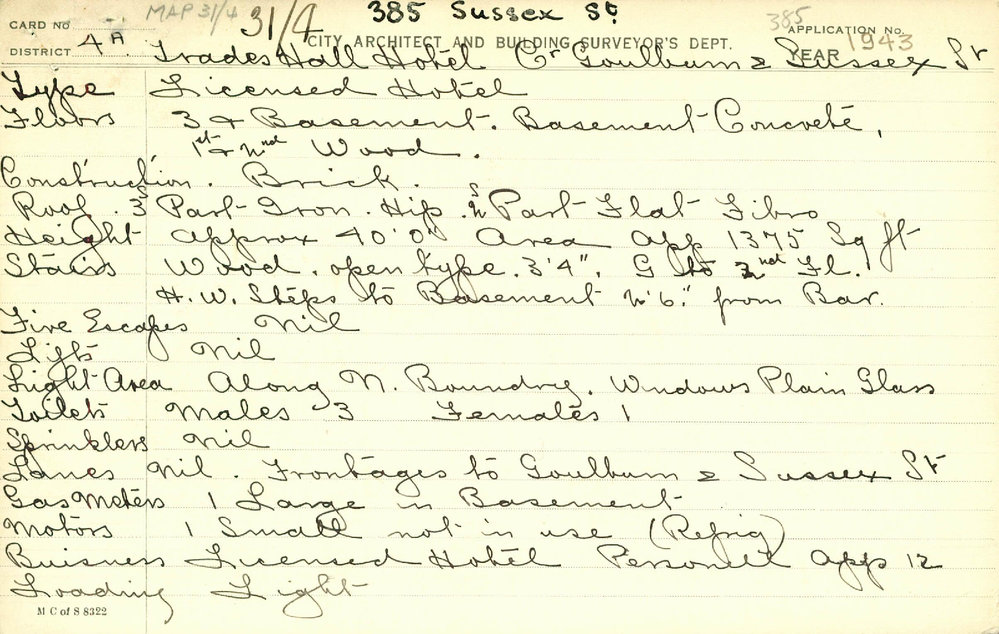 MAP 31/4 31/4 385 Sussex St 385
CARD No APPLICATION No.
DISTRICT 4A CITY ARCHITECT AND BUILDING SURVEYOR'S DEPT. YEAR 1943
Trades Hall Hotel Cr Goulburn & Sussex St
Type Licensed Hotel
Floors 3 & Basement. Basement Concrete,
1st & 2nd Wood.
Construction. Brick.
Roof. 3s Part Iron. Hip. 2s Part Flat Fibro
Height approx 40'0" Area app 1375 Sq ft
Stairs Wood. open type. 3'4". G to 2nd Fl.
H.W. Steps to Basement 2'6." from Bar.
Fire Escapes Nil
Lifts Nil
Light Area Along N. Boundry. Windows Plain Glass
Toilets Males 3 Females 1
Sprinklers Nil
Lanes Nil. Frontages to Goulburn & Sussex St
Gas Meters 1 Large in Basement
Motors 1 Small not in use (Refrig)
Buisness Licensed Hotel Personell app 12
Loading Light
M C of S 8322